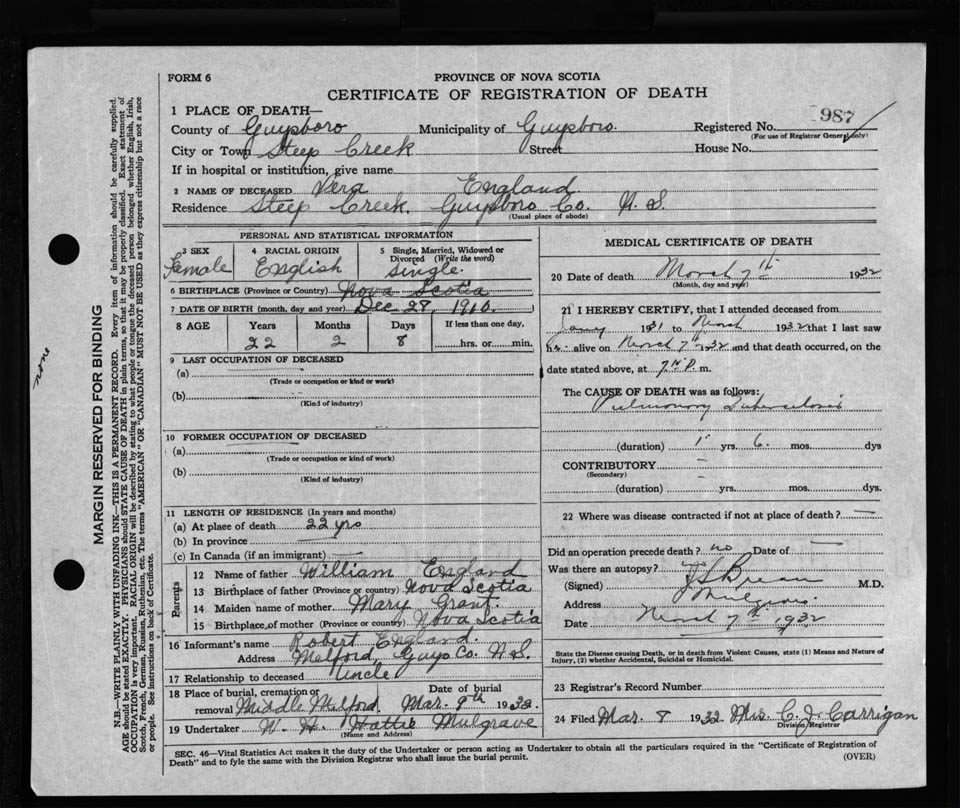 FORM 6
PROVINCE OF NOVA SCOTIA
CERTIFICATE OF REGISTRATION OF DEATH
987
1 PLACE OF DEATH—
County of Guysboro Municipality of Guysboro. Registered No.
(For use of Registrar General only)
City or Town Steep Creek Street House No.
If in hospital or institution, give name
2 NAME OF DECEASED Vera England
Residence Steep Creek, Guysboro Co. N. S.
(Usual place of abode)
PERSONAL AND STATISTICAL INFORMATION
3 SEX Female
4 RACIAL ORIGIN English
5 Single, Married, Widowed or Divorced (Write the word) Single.
6 BIRTHPLACE (Province or Country) Nova Scotia
7 DATE OF BIRTH (month, day and year) Dec 28, 1910.
8 AGE Years Months Days If less than one day,
22 2 8 hrs. or min.
9 LAST OCCUPATION OF DECEASED
(a)
(Trade or occupation or kind or work)
(b)
(Kind of industry)
10 FORMER OCCUPATION OF DECEASED
(a)
(Trade or occupation or kind of work)
(b)
(Kind of industry)
11 LENGTH OF RESIDENCE (In years and months)
(a) At place of death 22 yrs
(b) In province
(c) In Canada (if an immigrant)
Parents
12 Name of father William England
13 Birthplace of father (Province or Country) Nova Scotia
14 Maiden name of mother Mary Grant.
15 Birthplace of mother (Province or Country) Nova Scotia
16 Informant's name Robert England.
Address Melford, Guys Co. N. S.
17 Relationship to deceased Uncle
18 Place of burial, cremation or removal Middle Melford. Date of burial Mar. 9th 1932
19 Undertaker W. H. Hattie Mulgrave
(Name and Address)
MEDICAL CERTIFICATE OF DEATH
20 Date of death March 7th 1932
(Month, day and year)
21 I HEREBY CERTIFY, that I attended deceased from
Jany 1931 to March 1932 that I last saw
h alive on March 7th 1932 and that death occurred, on the
date stated above, at 7 P. m.
The CAUSE OF DEATH was as follows:
Pulmonary Tuberculosis
(duration) 1 yrs. 6. mos. dys
CONTRIBUTORY –
(Secondary)
(duration) yrs. mos. dys.
22 Where was disease contracted if not at place of death? –
Did an operation precede death? no Date of –
Was there an autopsy?
(Signed) M.D.
Address Mulgrave
Date March 7th 1932
State the Disease causing Death, or in death from Violent Causes, state (1) Means and Nature of
Injury, (2) whether Accidental, Suicidal or Homicidal.
23 Registrar's Record Number
24 Filed Mar. 8 1932 Mrs C. J. Carrigan
Division Registrar
SEC. 46—Vital Statistics Act makes it the duty of the Undertaker or person acting as Undertaker to obtain all the particulars required in the "Certificate of Registration of
Death" and to fyle the same with the Division Registrar who shall issue the burial permit.
(OVER)
none
MARGIN RESERVED FOR BINDING
N.B.—WRITE PLAINLY WITH UNFADING INK—THIS IS A PERMANENT RECORD. Every item of information should be carefully supplied.
AGE should be stated EXACTLY. PHYSICIANS should STATE CAUSE OF DEATH in plain terms, so that it may be properly classified. Exact statement of
OCCUPATION is very important. RACIAL ORIGIN will be described by stating to what people or tongue the deceased person belonged whether English, Irish,
Scotch, French, German, Russian, Ruthenian, etc. The terms "AMERICAN" OR "CANADIAN" MUST NOT BE USED as they express citizenship but not a race
or people. See instructions on back of Certificate.